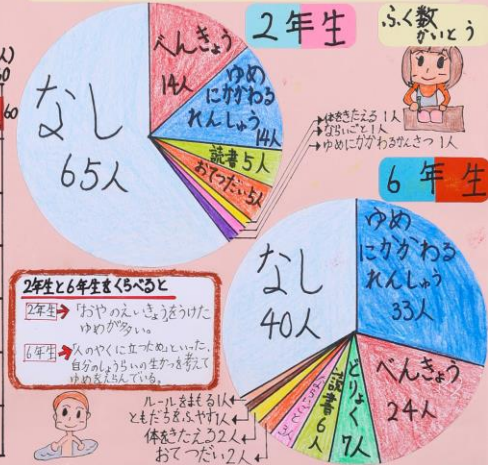 人)
60
2年生
ふく数
かいとう
べんきょう
14人
ゆめ
にかかわる
れんしゅう
14人
読書5人
おてつだい5人
なし
65人
体をきたえる 1人
ならいごと1人
ゆめにかかわるかんさつ 1人
6年生
なし
40人
ゆめ
にかかわる
れんしゅう
33人
べんきょう
24人
どりょく
7人
読書
6人
ルールをまもる1人
ともだちをふやす1人
体をきたえる2人
おてつだい2人
2年生と6年生をくらべると
2年生→「おやのえいきょう」をうけた
ゆめが多い。
6年生→「人のやくに立つため」といった、
自分のしょうらいの生かつを考えて
ゆめをえらんでいる。